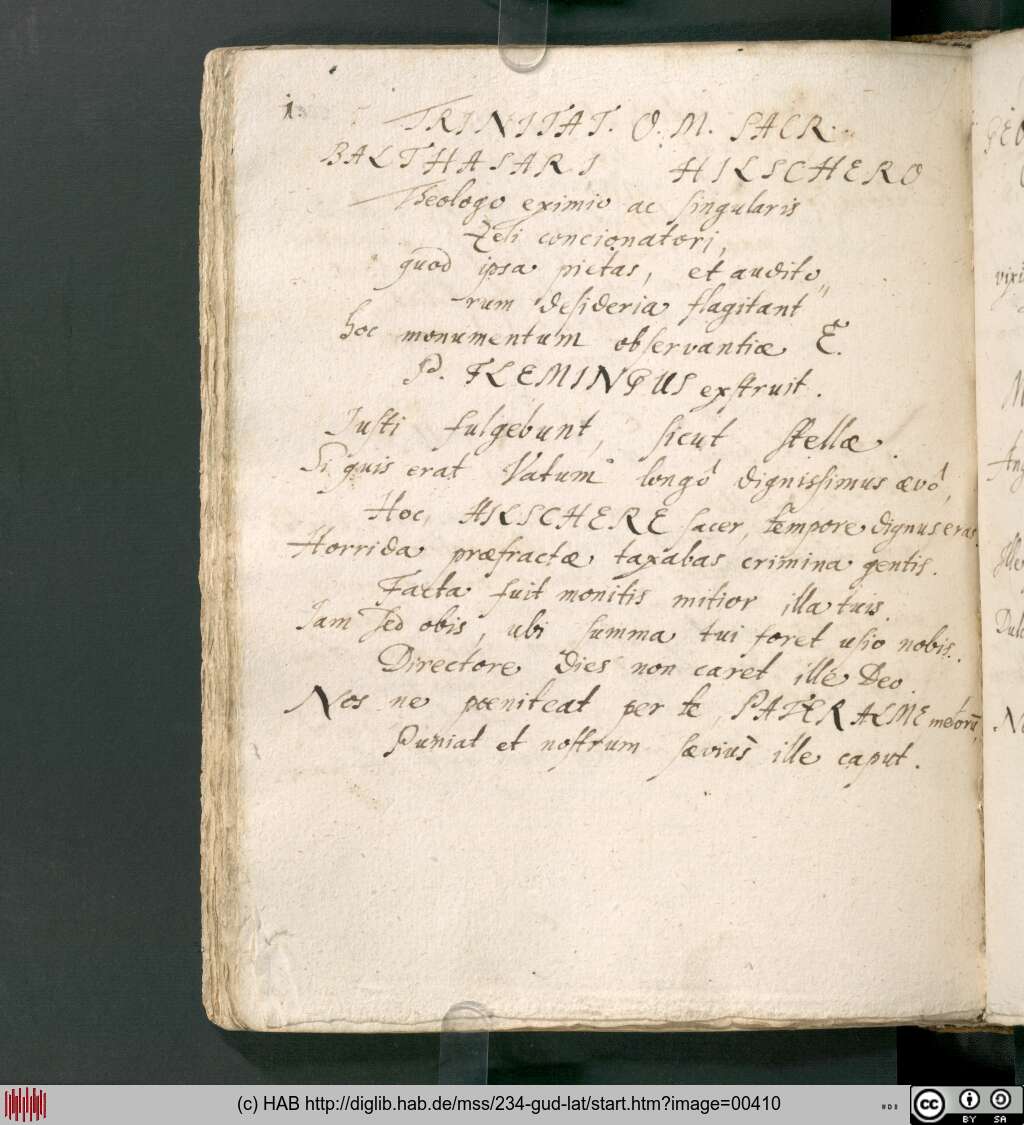 1.
TRINITAT. O. M. SACR.
BALTHASARI HILSCHERO
Theologo eximio ac singularis
Zeli concionatori,
quod ipsa pietas, et audito„
rum desideria flagitant
hoc monumentum observantiæ E.
P. FLEMINGUS exstruit.
Justi fulgebunt, sicut stellæ.
Si quis erat Vatum longô dignissimus ævô,
Hoc, HILSCHERE sacer, tempore dignus eras.
Horrida præfractæ taxabas crimina gentis.
Facta fuit monitis mitior illa tuis.
Jam sed obis, ubi summa tui foret usio nobis.
Directore dies non caret ille Deo.
Nos ne pœniteat per te, PATER ALME
Puniat et nostrum sæviùs ille caput.
(c) HAB http://diglib.hab.de/mss/234-gud-lat/start.htm?image=00410
cc BY SA